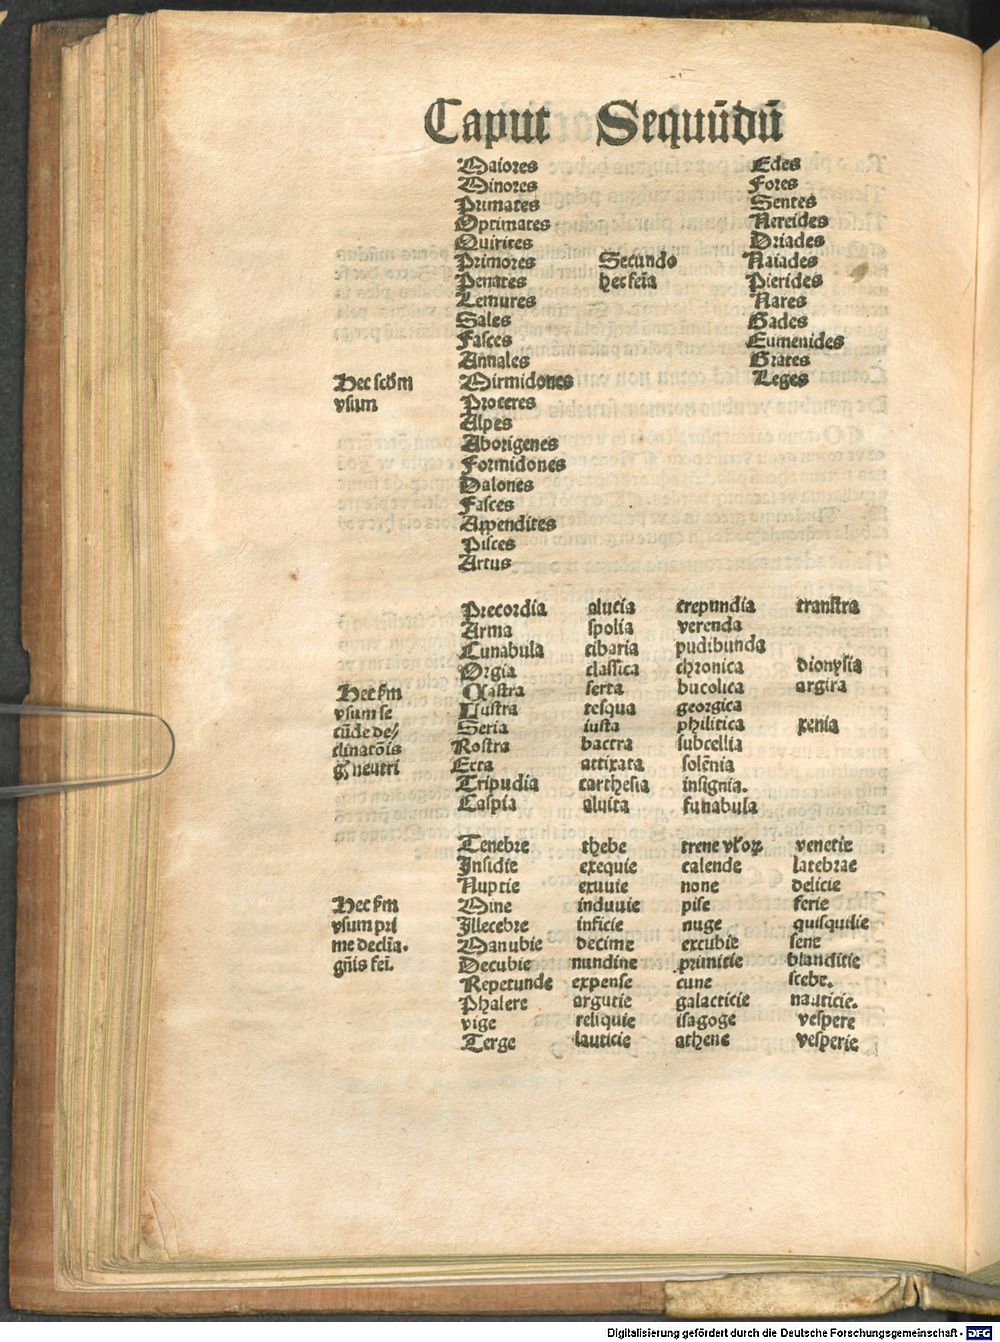 Caput Sequūdū
Maiores Edes
Minores Fores
Primates Sentes
Optimates Nereides
Quirites Driades
Primores Secundo Naiades
Penates hec feīa Pierides
Lemures Nares
Sales Gades
Fasces Eumenides
Annales Grates
Hec scd̄m Mirmidones Leges
vsum Proceres
Alpes
Aborigenes
Formidones
Dalones
Fasces
Appendites
Pisces
Artus
Precordia alucia crepundia transtra
Arma spolia verenda
Cunabula cibaria pudibunda
Orgia classica chronica dionysia
Hec s̄m Castra serta bucolica argira
vsum se Lustra tesqua georgica
cūde de/ Seria iusta philitica xenia
clinatōis Rostra bactra subcellia
gn̄is neutri Ecta attixata solēnia
Tripudia carthesia insignia.
Caspia aluita funabula
Tenebre thebe trene vl'oꝝ venetie
Insidie exequie calende latebrae
Nuptie exuuie none delicie
Hec s̄m Mine induuie pise ferie
vsum pri Illecebre inficie nuge quisquilie
me declīa. Manubie decime excubie sene
gn̄is feī. Decubie nundine primitie blanditie
Repetunde expense cune scebe.
Phalere argutie galacticie nauticie.
vige reliquie isagoge vespere
Terge lauticie athene vesperie
Digitalisierung gefördert durch die Deutsche Forschungsgemeinschaft - DFG